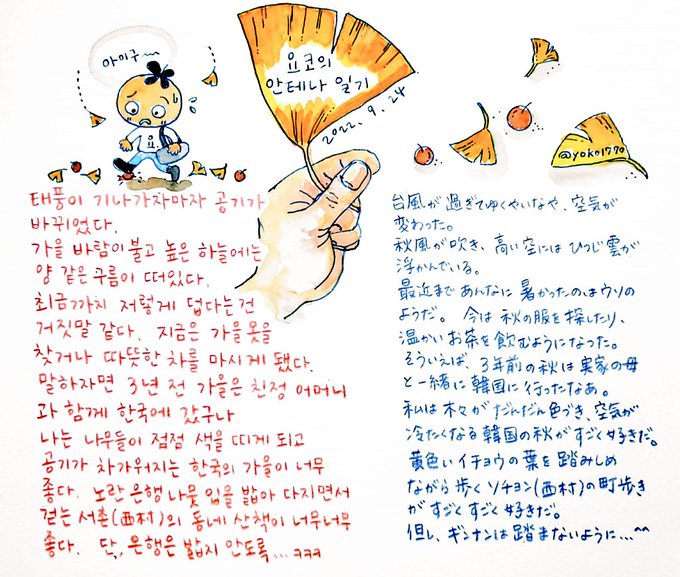 아이구~~
요
요코의
안테나 일기
2022. 9. 24
@yoko1770
태풍이 기나가자마자 공기가
바뀌었다.
가을 바람이 불고 높은 하늘에는
양 같은 구름이 떠있다.
최금까지 저렇게 덥다는건
거짓말 같다. 지금은 가을옷을
찾거나 따뜻한 차를 마시게 됐다.
말하자면 3년 전 가을은 친정 어머니
과 함께 한국에 갔구나
나는 나무들이 점점 색을 띠게 되고
공기가 차가워지는 한국의 가을이 너무
좋다. 노란 은행 나뭇 잎을 밟아 다지면서
걷는 서촌(西村)의 동네 산책이 너무너무
좋다. 단, 은행은 밟지 안도록... ㅋㅋㅋ
台風が過ぎてゆくやいなや、空気が
変わった。
秋風が吹き、高い空にはひつじ雲が
浮かんでいる。
最近まであんなに暑かったのはウソの
ようだ。 今は秋の服を探したり、
温かいお茶を飲むようになった。
そういえば、3年前の秋は実家の母
と一緒に韓国に行ったなあ。
私は木々がだんだん色づき、空気が
冷たくなる韓国の秋がすごく好きだ。
黄色いイチョウの葉を踏みしめ
ながら歩くソチョン(西村)の町歩き
がすごくすごく好きだ。
但し、ギンナンは踏まないように...^^